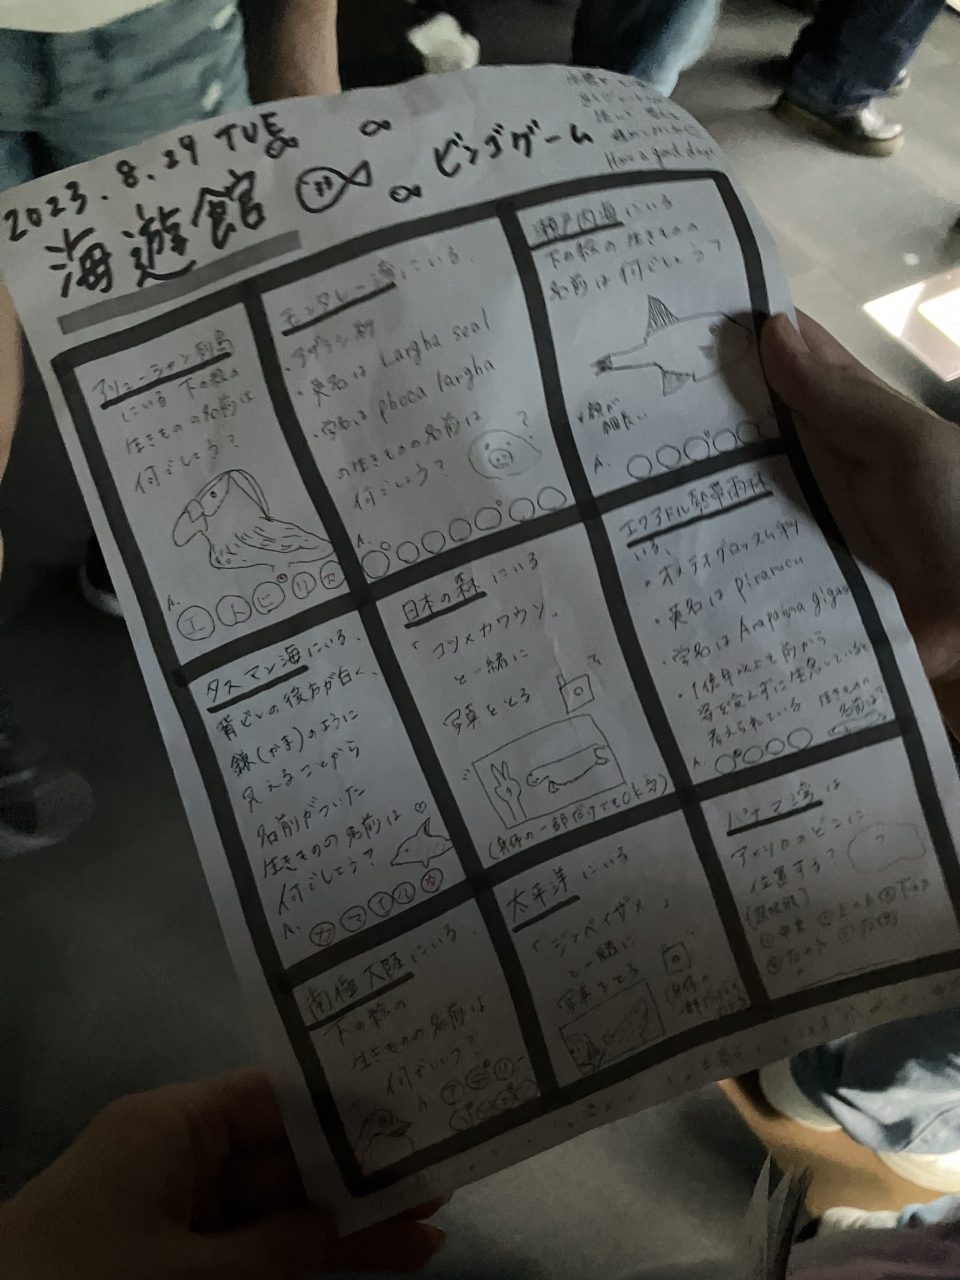 2023.8.29 TUE
海遊館 ビンゴゲーム
Have a good day
アリューシャン列島
にいる 下の絵の
生きものの名前は
何でしょう?
A. エトピリカ
モンタレー湾にいる、
アザラシ科
・英名は Largha seal
・学名は phoca largha
の生きものの名前は
何でしょう?
A.
瀬戸内海にいる
下の絵の生きものの
名前は何でしょう?
・顔が
細長い
A.
タスマン海にいる、
背びれの後方が白く、
鎌(かま)のように
見えることから
名前がついた
生きものの名前は
何でしょう?
A. カマイルカ
日本の森にいる
「コツメカワウソ」
と一緒に
写真をとる
(身体の一部だけでもOK)
エクアドル熱帯雨林
にいる、
・オステオグロッスム
・英名は Pirarucu
・学名は Arapaima gigas
・1億年以上も前から
姿を変えずに生息していると
考えられている 生きものの
名前は?
A.
南極大陸にいる、
下の絵の
生きものの名前は
何でしょう?
A
太平洋にいる
「ジンベイザメ」
と一緒に
写真をとる
(身体の
パナマ湾は
アメリカのどこに
位置する?
(選択肢)